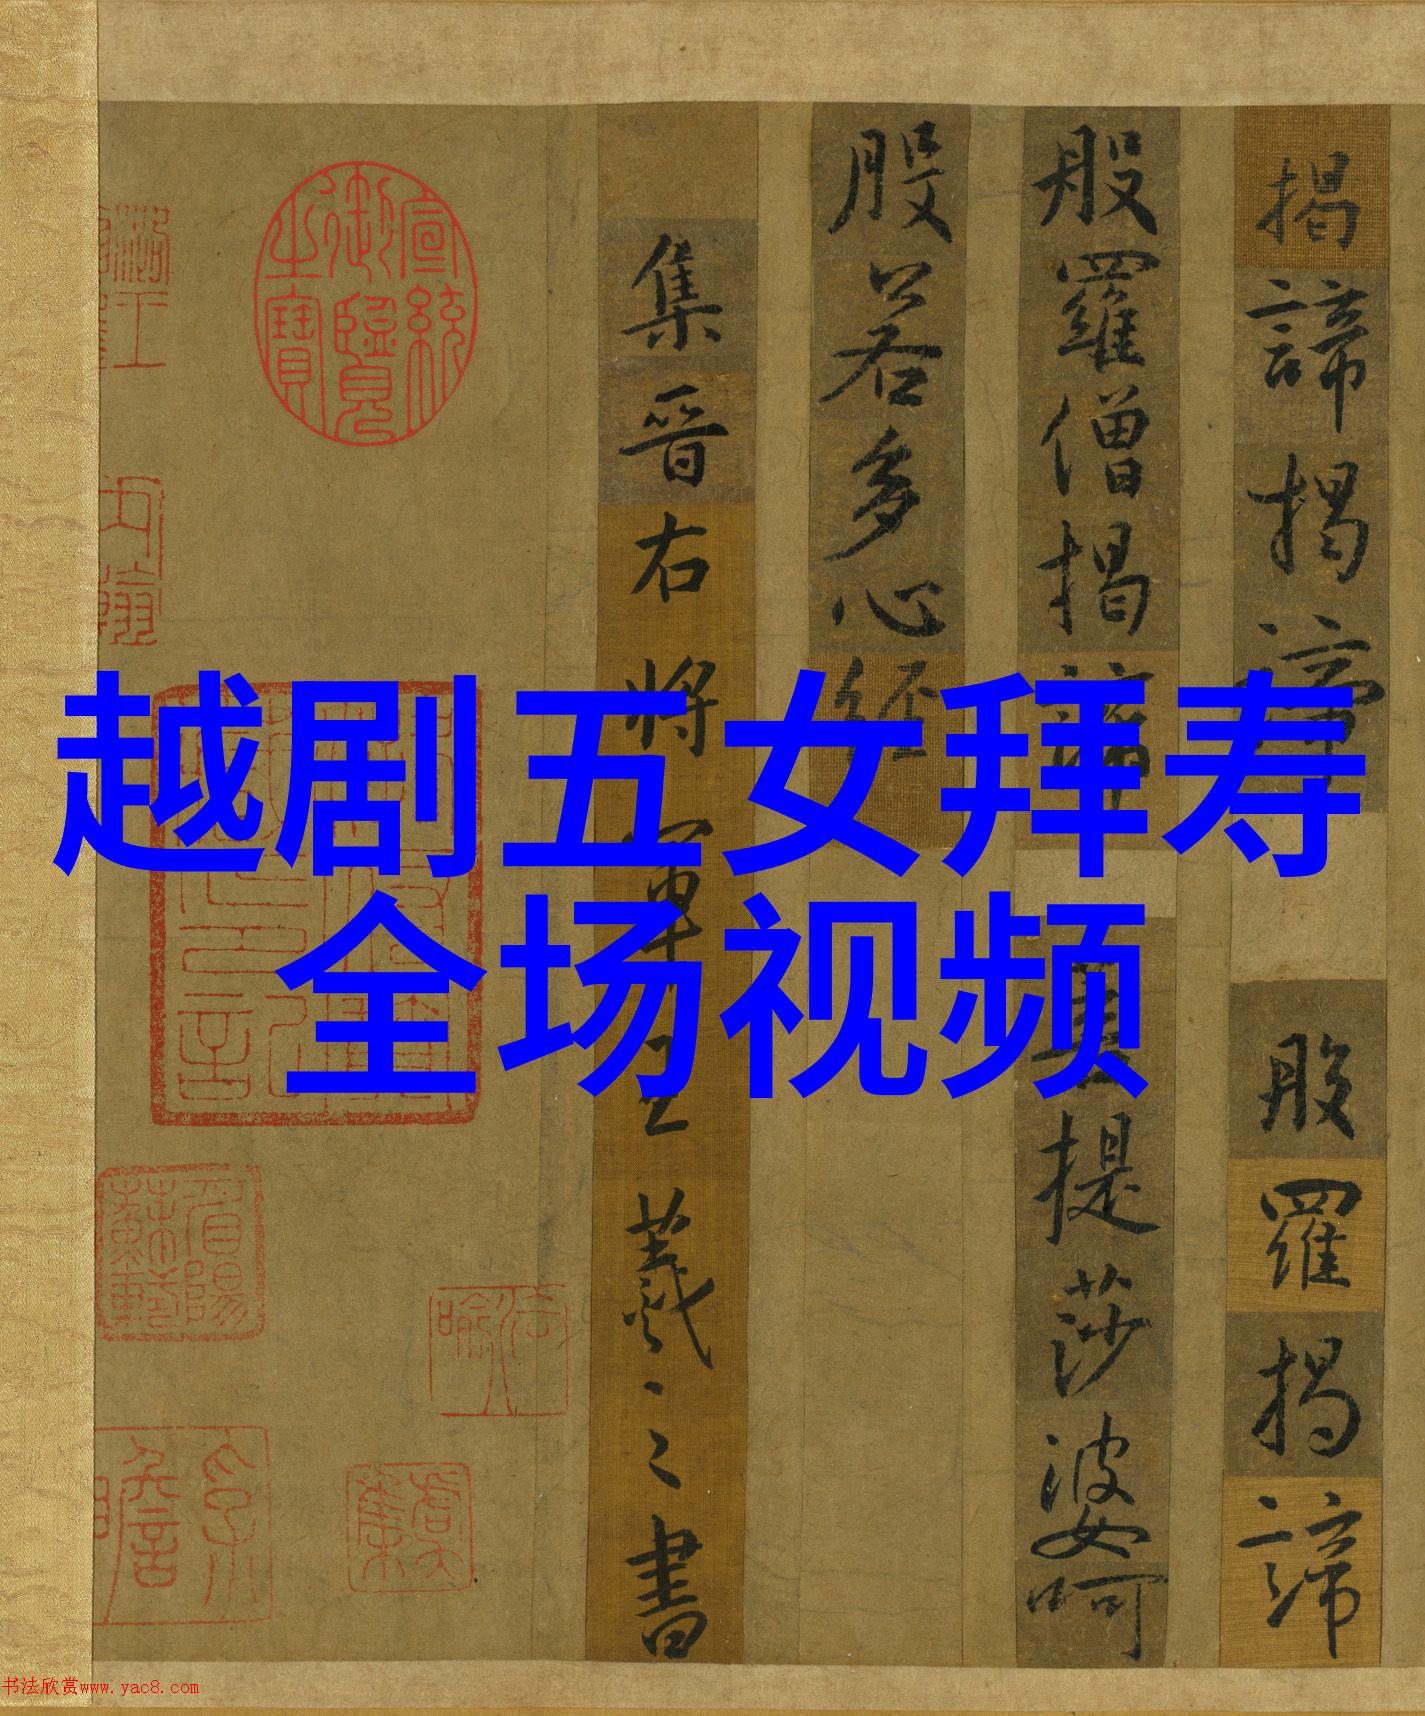 越剧五女拜寿
全场视频
揭諦揭諦般羅揭諦
般羅僧揭諦菩提莎婆呵
般若多心經
集晉右將軍王羲之書
宣統御覽之寶
书法欣赏www.yac8.com